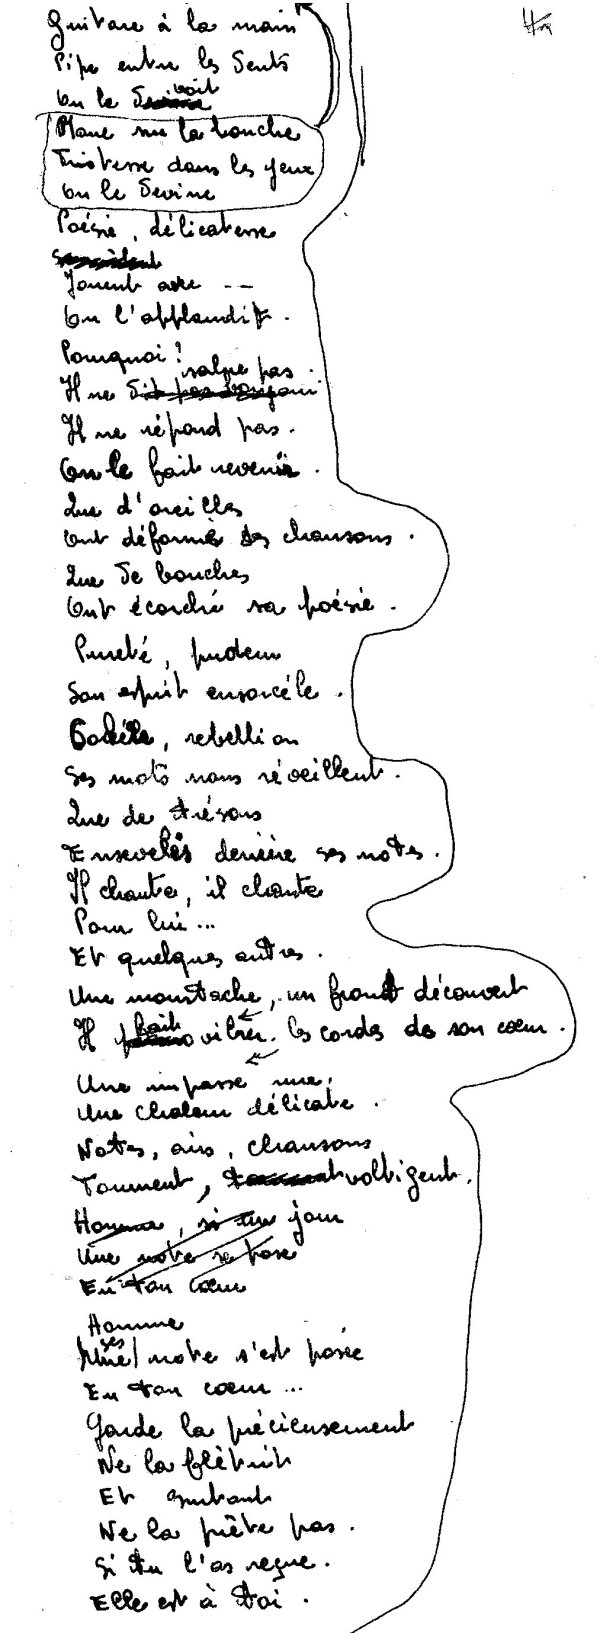 Guitare à la main
Pipe entre les dents
On le devine boit
Blanc sur la bouche
Tristesse dans les yeux
On le devine
Poésie, délicatesse
Jouent avec --
On l'applaudit.
Pourquoi?
Il ne salue pas.
Il ne répond pas.
On le fait revenir.
Que d'oreilles
Ont déformé ses chansons.
Que de bouches
Ont écorché sa poésie.
Pureté, pudeur
Son esprit ensorcéle.
rebellion
Ses mots nous réveillent.
Que de trésors
Ensevelis derrière ses notes.
Il chante, il chante
Pour lui...
Et quelques autres.
Une moustache, un front découvert
Il fait vibrer. les cordes de son cœur.
Une impasse nue,
Une chaleur délicate.
Notes, airs, chansons
Tournent, voltigent.
Homme, si un jour
Une note se pose
En ton cœur
Homme
Une note s'est posée
En ton cœur...
Garde la précieusement
Ne la flètrit
Et surtout
Ne la prête pas.
Si tu l'as reçue.
Elle est à toi.